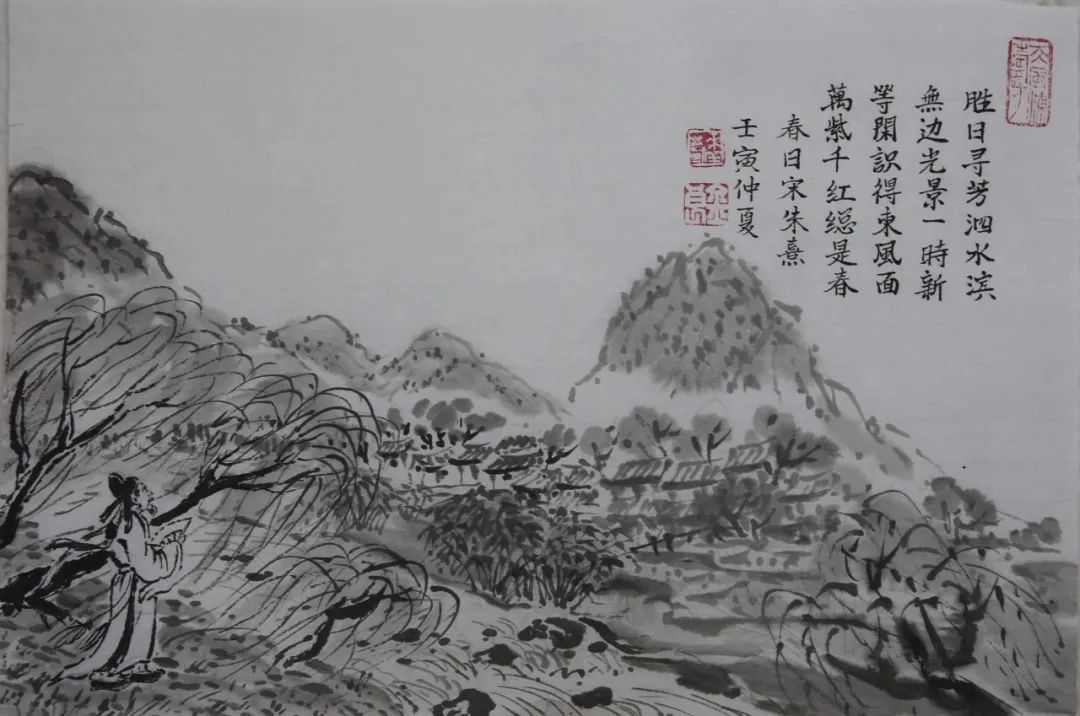 胜日寻芳泗水滨
無边光景一時新
等閑识得東風面
萬紫千红總是春
春日宋朱熹
壬寅仲夏